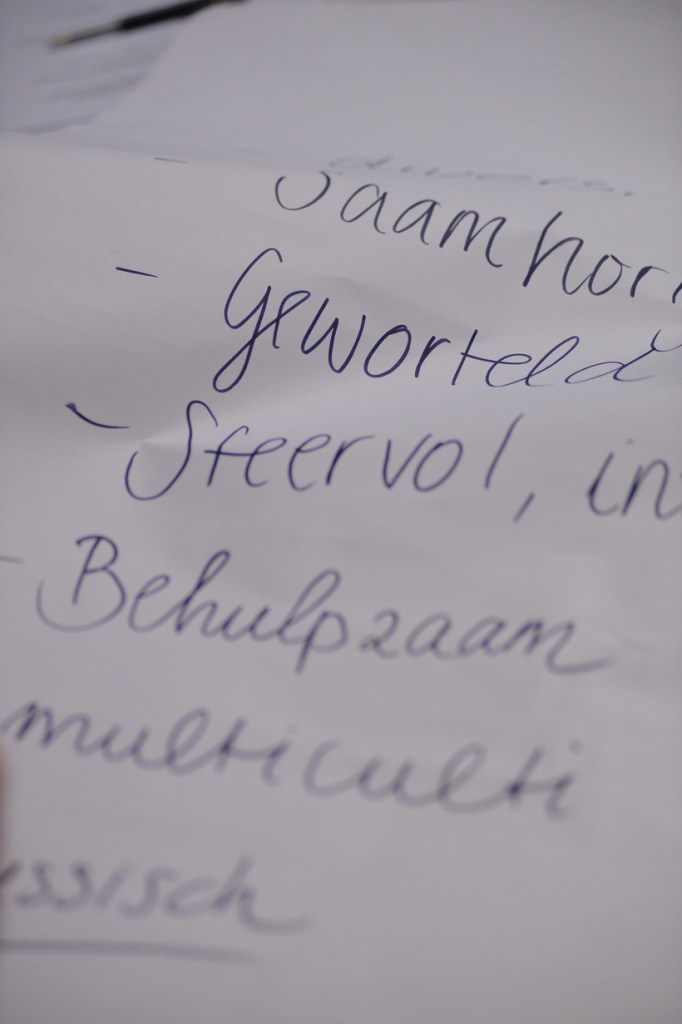 divers.
- Saamhori
- Geworteld
- Sfeervol, in
- Behulpzaam
multiculti
ssisch